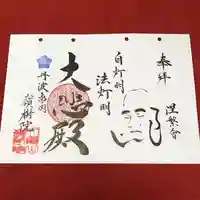 奉拝
涅槃会
自灯明
法灯明
大悲殿
丹波亀岡